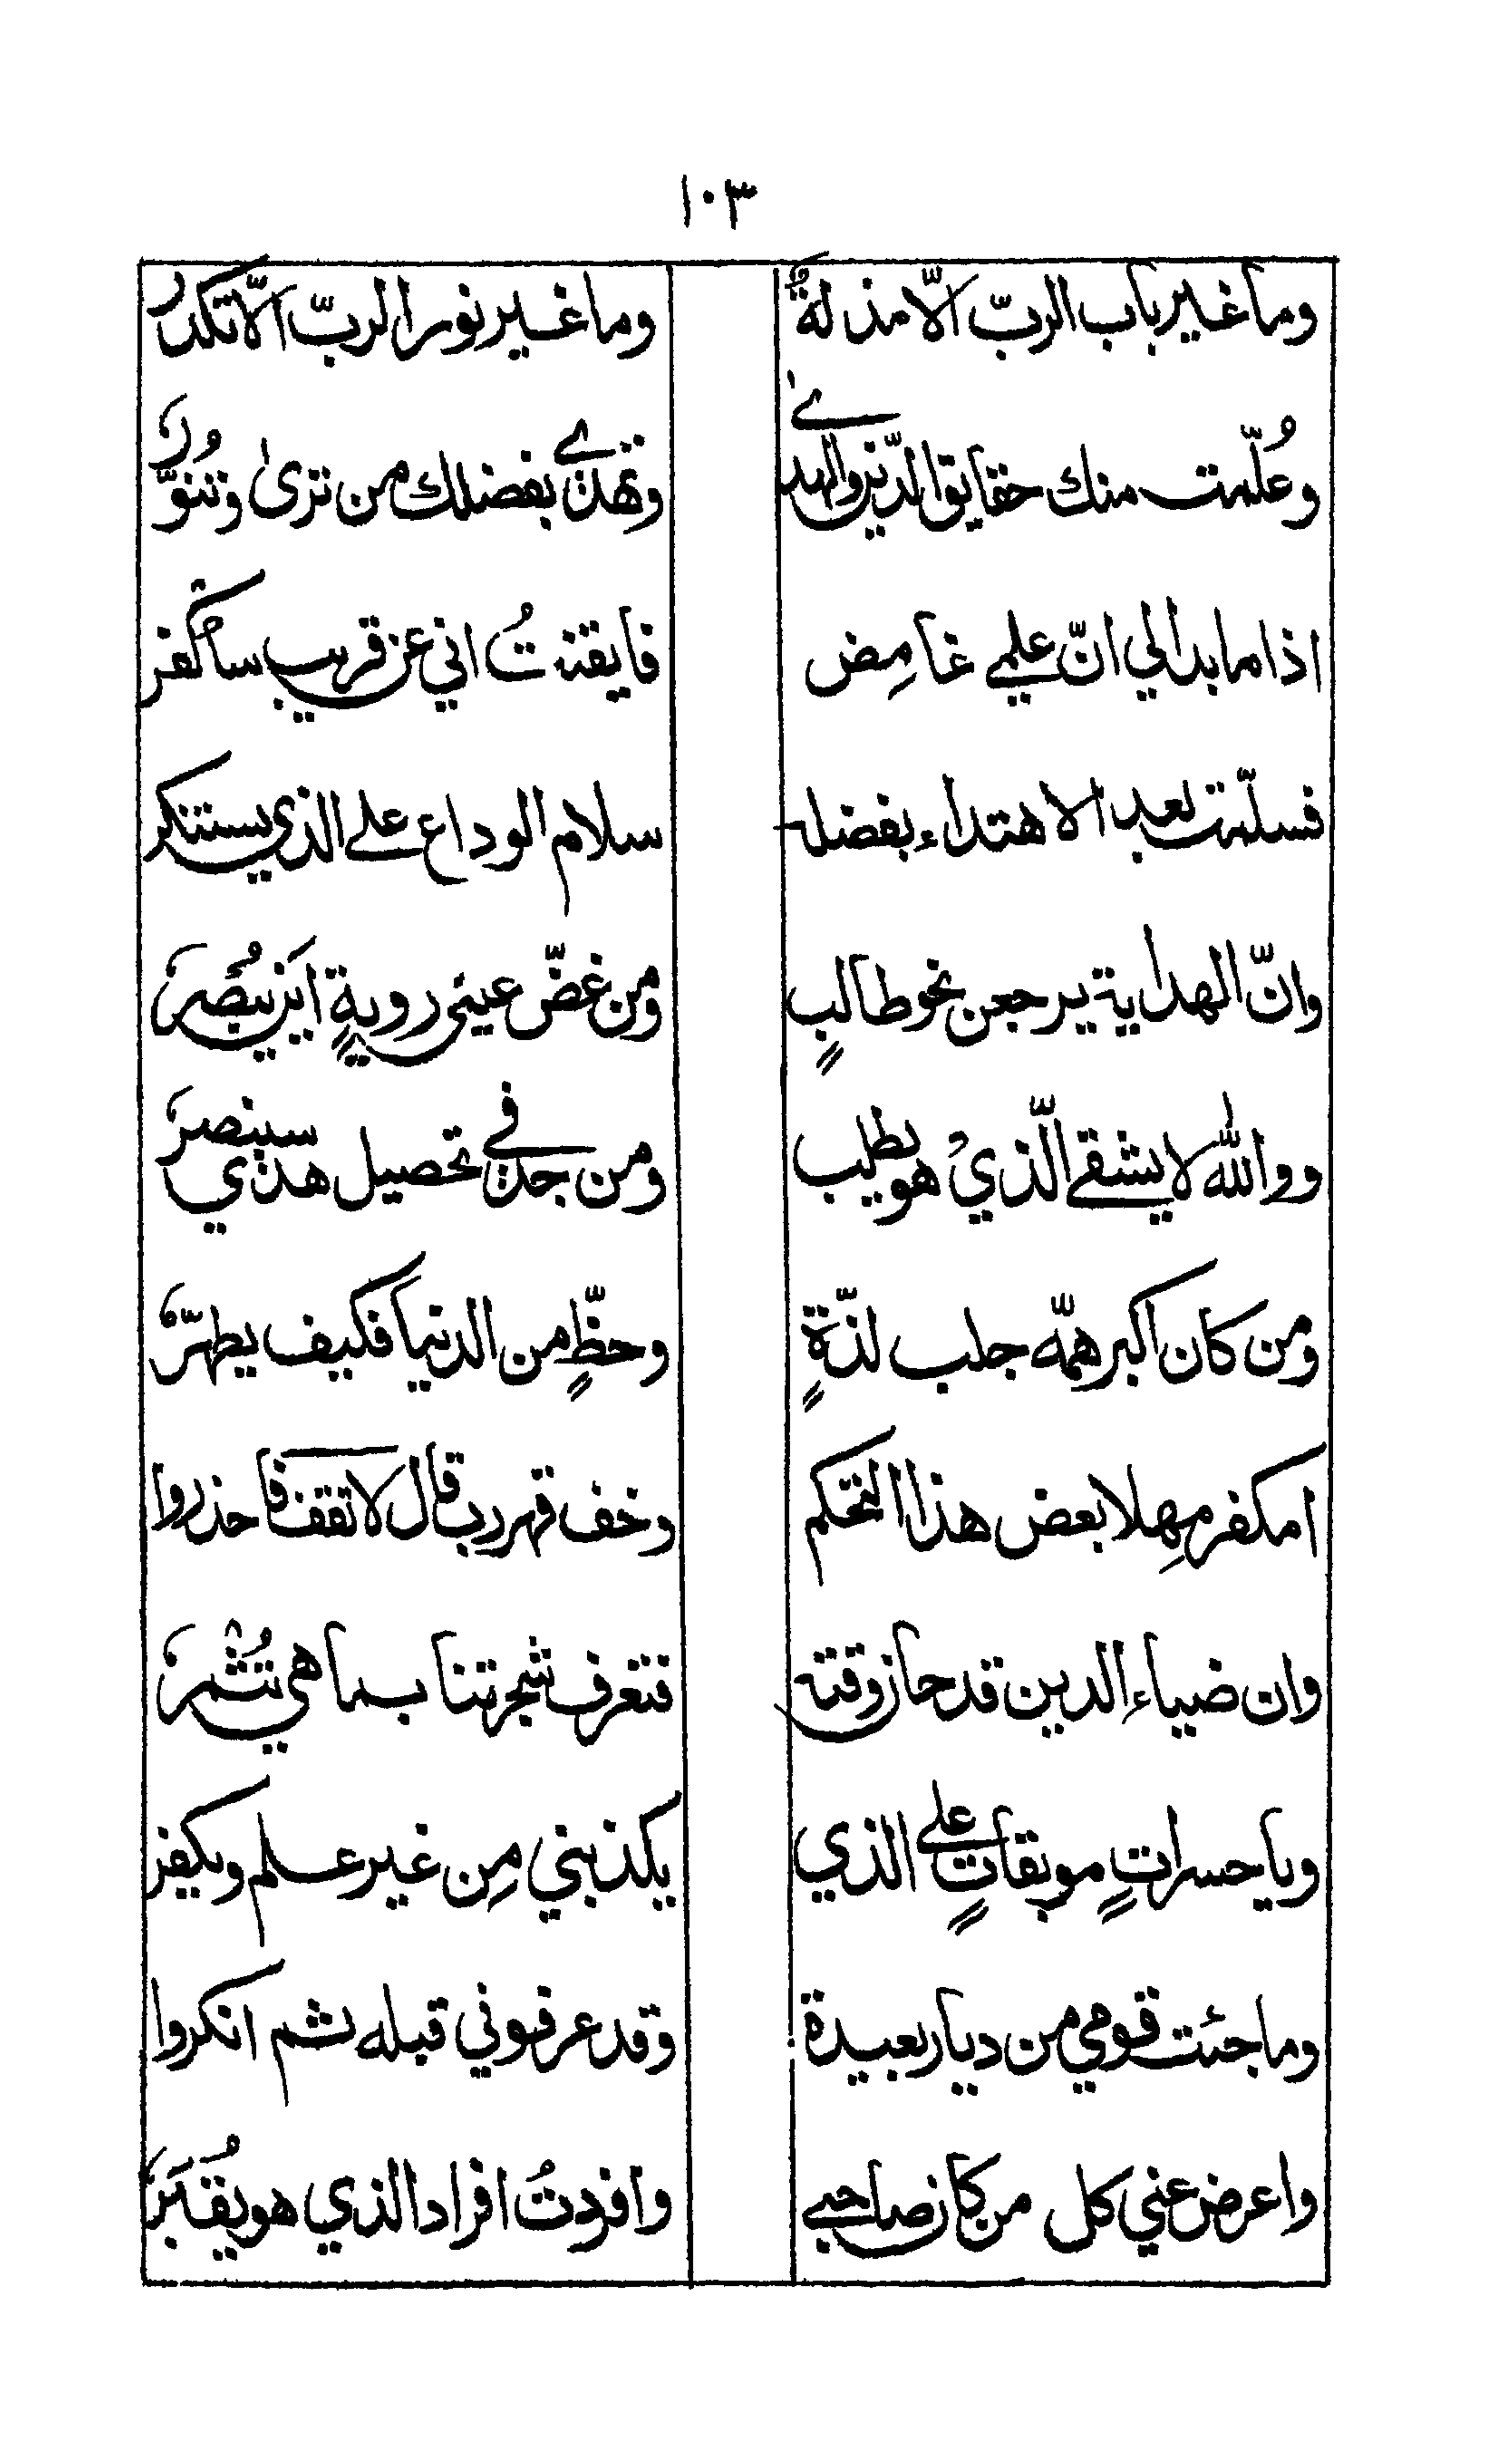 ١٠٣
وما غير باب الربّ الّا مذلةٌ وما غير نور الربّ الّا تكدر
وعُلّمت منك حقايق الدّين والهدىٰ وتهدى بفضلك من ترىٰ وتنوّرُ
اذا ما بدا لي انّ علمي غامِض فايقنتُ اني عن قريب ساكفر
فسلّمت بعد الاهتداء بفضله سلام الوداع على الذي يستنكر
وانّ الهداية يرجعن نحو طالبٍ ومن غضّ عيني رويةٍ اين يُبصرُ
ووالله لا يشقى الّذي هو يطلب ومن جدّ في تحصيل هدي سينصرُ
ومن كان اكبر همّه جلب لذّةٍ وحظٍّ من الدنيا فكيف يطهّرُ
امكفر مهلا بعض هذا التحكم وخف قهر رب قال لا تقف فاحذروا
وان ضياء الدين قد حان وقته فتعرف شجرتنا بما هي تُثمرُ
ويا حسراتٍ موبقاتٍ على الذي يكذبني مِن غير علم ويكفر
وما جئت قومي من ديار بعيدة وقد عرفوني قبله ثم انكروا
واعرض عني كل من كان صاحبي وافردتُ افراد الذي هو يُقبَرُ